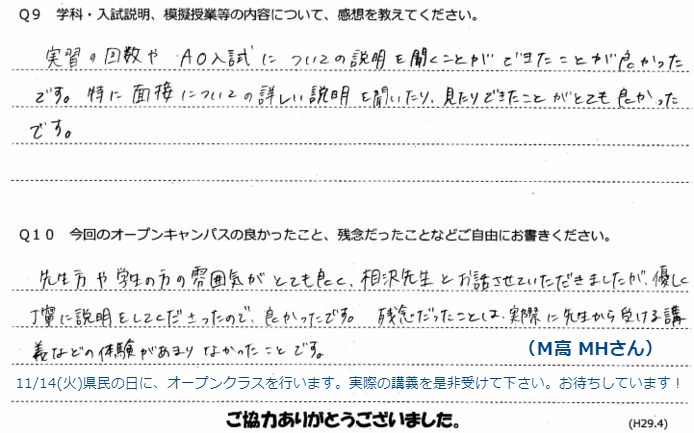 Q9 学科・入試説明、模擬授業等の内容について、感想を教えてください。
実習の回数や AO入試 についての説明を聞くことができたことが良かった
です。特に面接についての詳しい説明を聞いたり、見たりできたことがとても良かった
です。
Q10 今回のオープンキャンパスの良かったこと、残念だったことなどご自由にお書きください。
先生方や学生の方の雰囲気がとても良く、相沢先生とお話させていただきましたが、優しく
丁寧に説明をしてくださったので、良かったです。 残念だったことは、実際に先生から受ける講
義などの体験があまりなかったことです。
（M高 MHさん）
11/14(火)県民の日に、オープンクラスを行います。実際の講義を是非受けて下さい。お待ちしています！
ご協力ありがとうございました。
(H29.4)